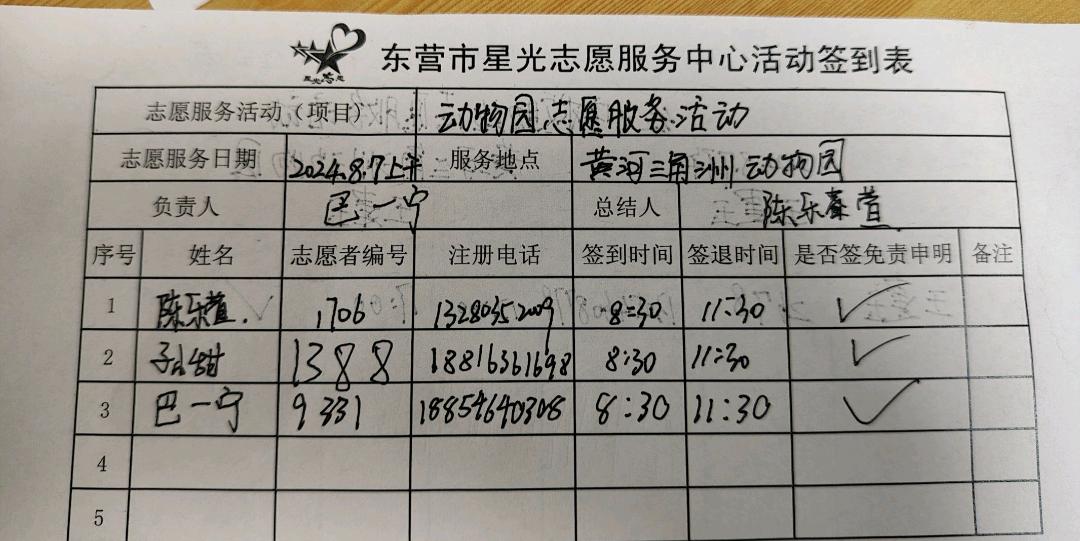 星光志愿
东营市星光志愿服务中心活动签到表
志愿服务活动（项目） 动物园志愿服务活动
志愿服务日期 2024.8.7上午 服务地点 黄河三角洲动物园
负责人 巴一宁 总结人 陈乐萱
序号 姓名 志愿者编号 注册电话 签到时间 签退时间 是否签免责申明 备注
1 陈乐萱. 1706 13280352009 8:30 11:30 ✓
2 孙甜 1388 18816361698 8:30 11:30 ✓
3 巴一宁 9331 18854640308 8:30 11:30 ✓
4
5